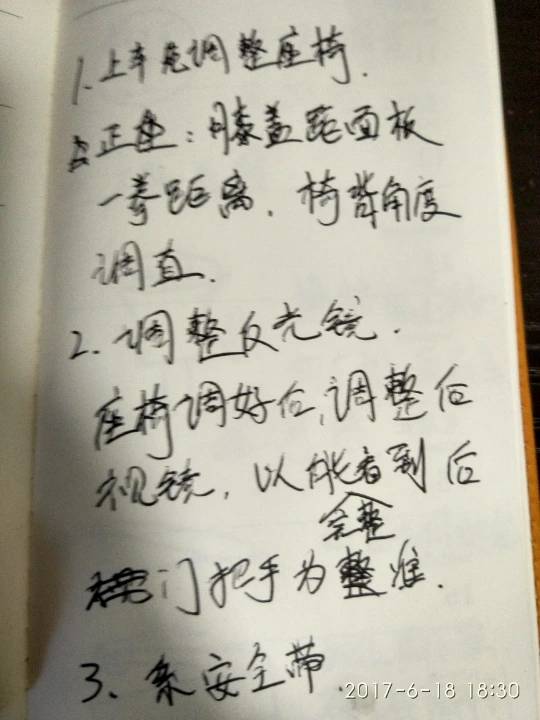 1. 上车先调整座椅.
正座：膝盖距面板
一拳距离. 椅背角度
调直.
2. 调整反光镜.
座椅调好后,调整后
视镜, 以能看到后
完整
门把手为准.
3、系安全带.
2017-6-18 18:30